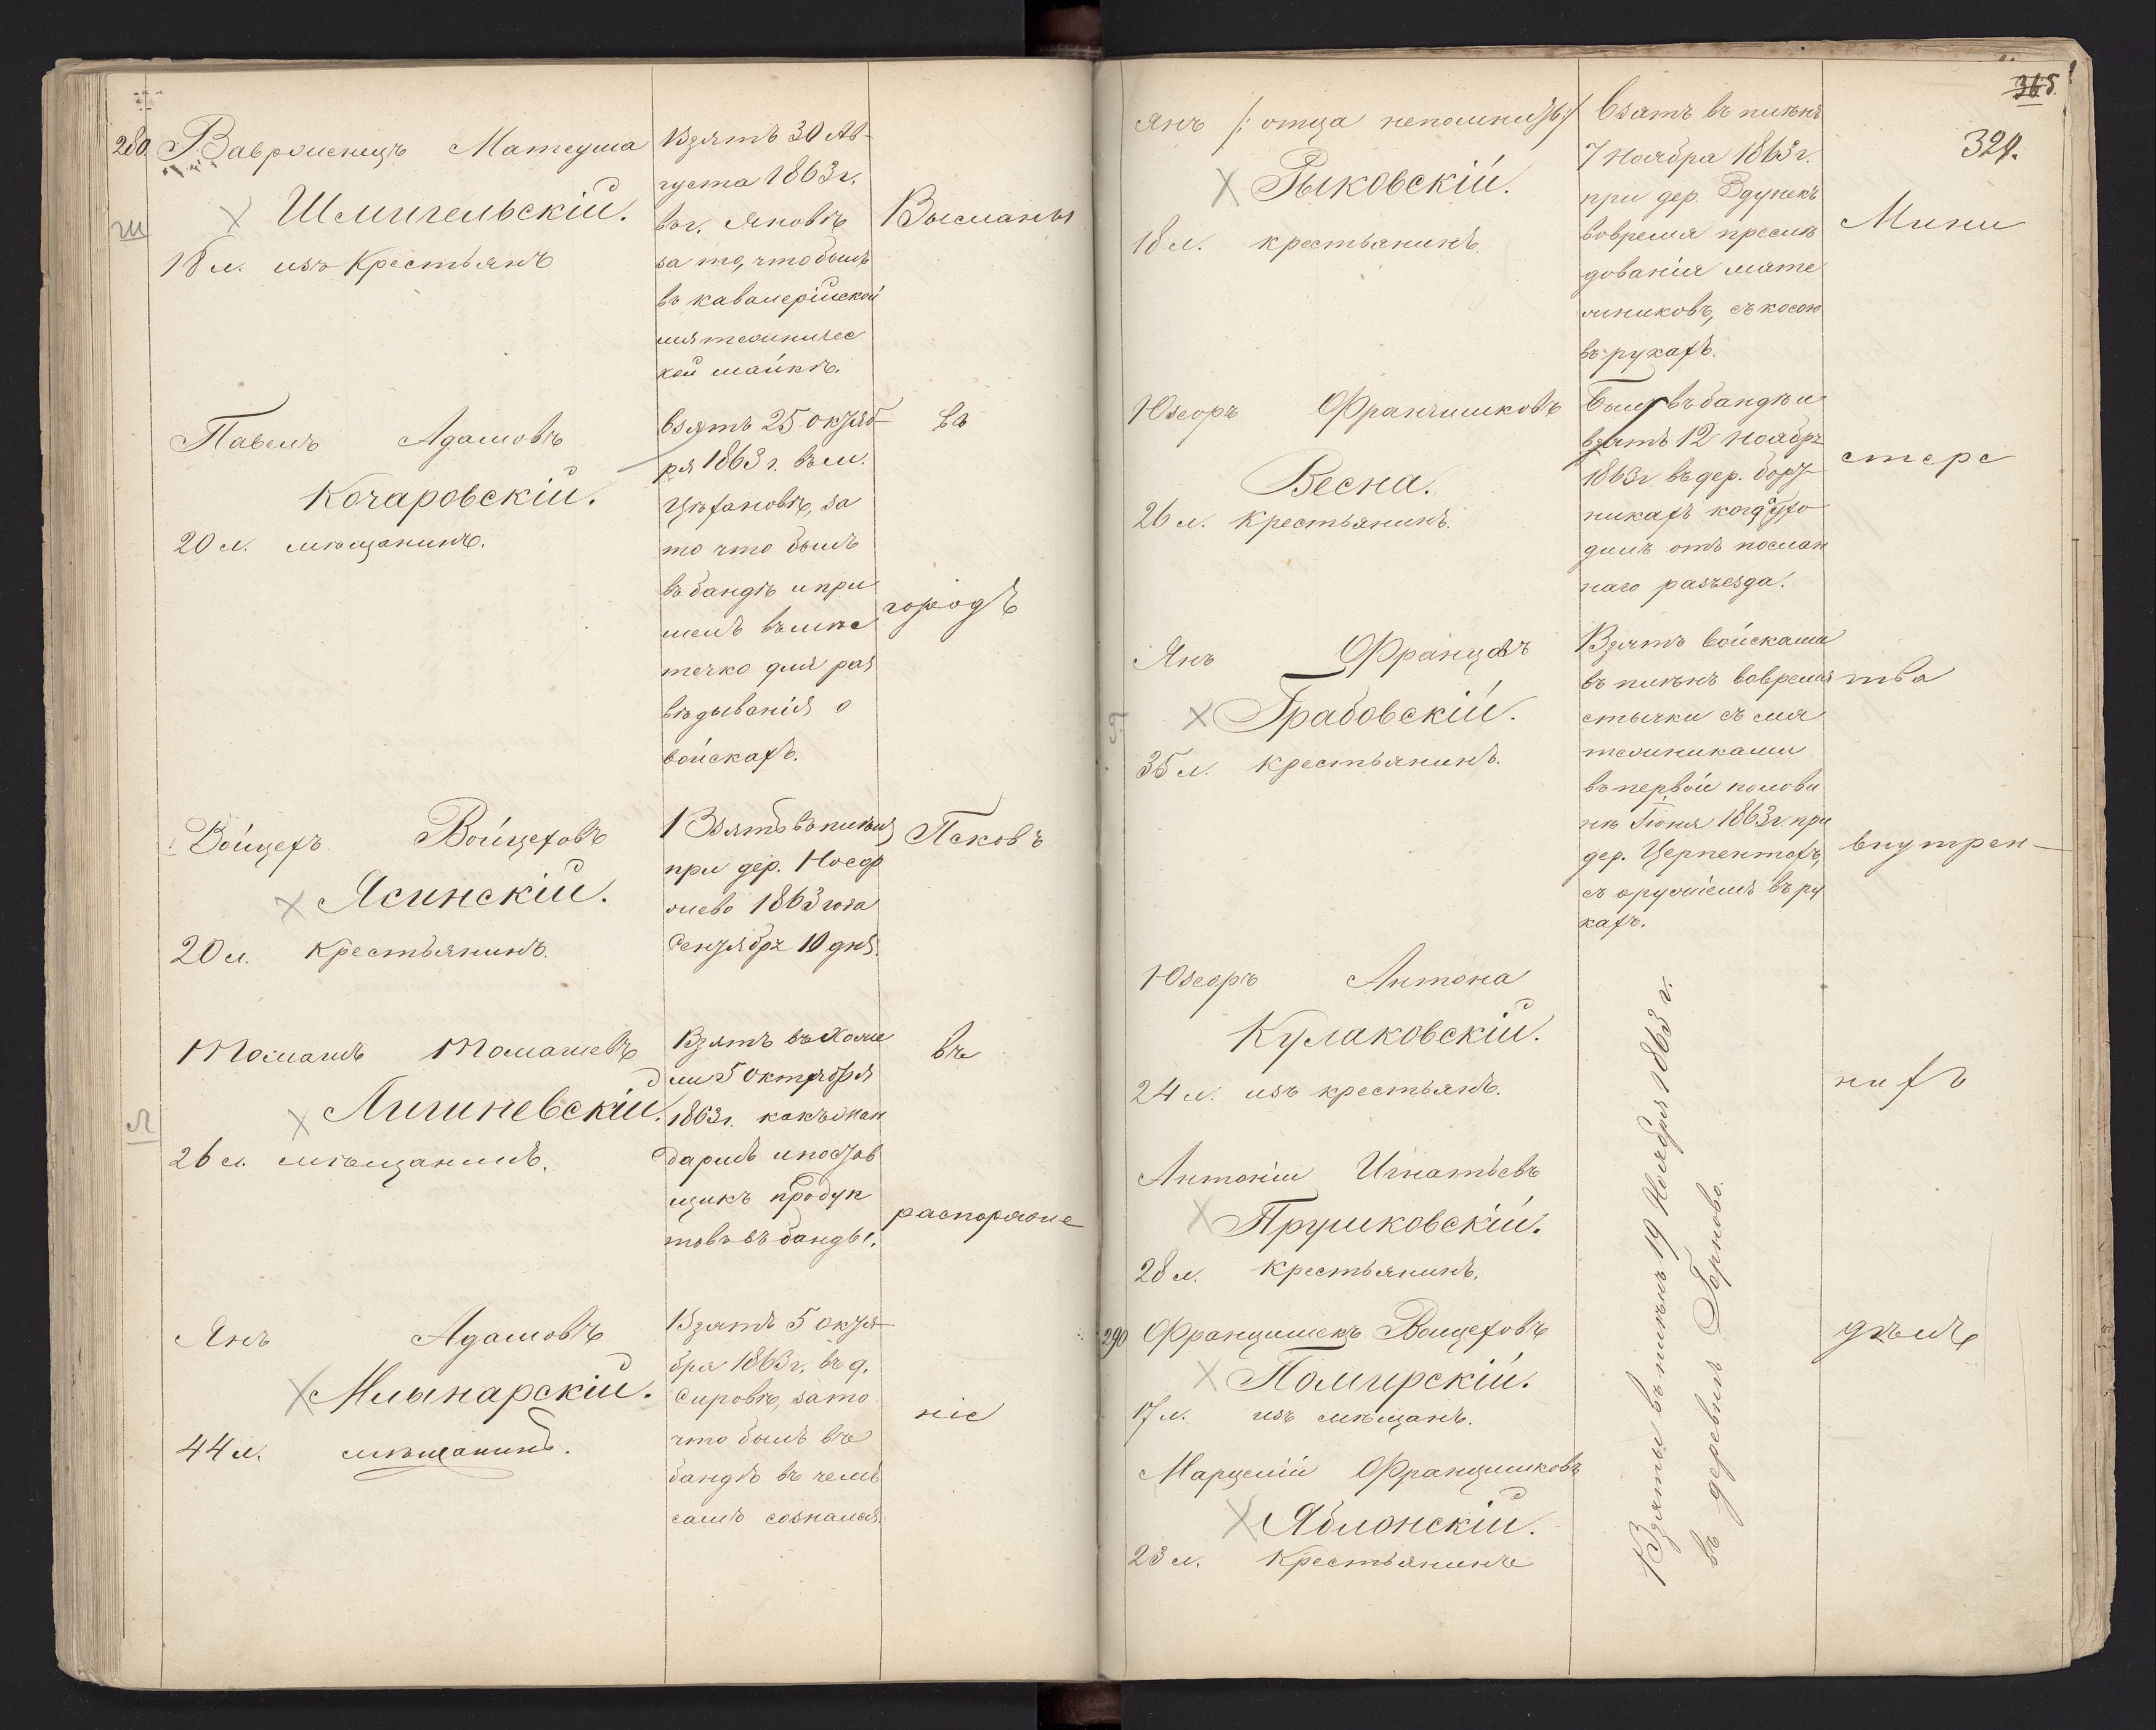 280. Вавроменецъ Матеуша
Шмигельскій.
ш
18 л. изъ Крестьянъ
Взятъ 30 Ав-
густа 1863 г.
въ г. Яновѣ
за то, что былъ
въ кавалерійской
мятежничес
кой шайкѣ.
Высланы
Павелъ Адамовъ
Кочаровскій.
20 л. мѣщанинъ.
Взятъ 25 октяб-
ря 1863 г. въ м.
Цѣхановѣ, за
то что былъ
въ бандѣ и при
шелъ въ мѣс
течко для раз
вѣдыванія о
войскахъ.
въ
городъ
Войцехъ Войцеховъ
Ясинскій.
20 л. Крестьянинъ.
Взятъ въ плѣнъ
при дер.
1863 года
Сентября 10 дня.
Псковъ
Томашъ Томашевъ
Лигиневскій.
л
26 л. мѣщанинъ.
Взятъ въ Холме
ли 5 Октября
1863 г. какъ жан
дармъ и постав
щикъ продук
товъ въ банды.
въ
распоряже
Янъ Адамовъ
Млынарскій.
44 л. мѣщанинъ.
Взятъ 5 октя-
бря 1863 г. въ д.
Сировѣ, за то
что былъ въ
бандѣ въ чемъ
самъ сознался.
ніе
365.
329.
Янъ /: отца непомнитъ :/
Рыковскій.
18 л. крестьянинъ.
Взятъ въ плѣнъ
7 Ноября 1863 г.
при дер. Здунекъ
вовремя преслѣ
дованія мяте
жниковъ, съ косою
въ рукахъ.
Мини
Юзефъ Франчишковъ
Весна.
26 л. Крестьянинъ.
Былъ въ бандѣ и
взятъ 12 Ноября
1863 г. въ дер. Борз-
никахъ когда ухо
дилъ отъ послан
наго разъезда.
стерс
Янъ Францовъ
Грабовскій.
35 л. Крестьянинъ.
Взятъ войсками
въ плѣнъ вовремя
стычки съ мя
тежниками
въ первой полови
нѣ Іюня 1863 г. при
дер. Церпентахъ,
съ оружіемъ въ ру
кахъ.
тва
внутрен-
Юзефъ Антона
Кулаковскій.
24 л. изъ крестьянъ.
нихъ
Антоній Игнатьевъ
Прушковскій.
28 л. Крестьянинъ.
290 Францишекъ Войцеховъ
Помирскій.
17 л. изъ мѣщанъ.
дѣлъ
Марцелій Францишковъ
Яблонскій.
23 л. Крестьянинъ
Взяты въ плѣнъ 19 Ноября 1863 г.
въ деревнѣ Горново.